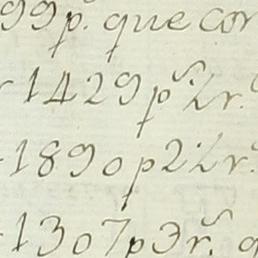 99 p.s que cor
1429 p.s 2 r.s
1890 p 2 2 r.s
1307 p 3 r.s